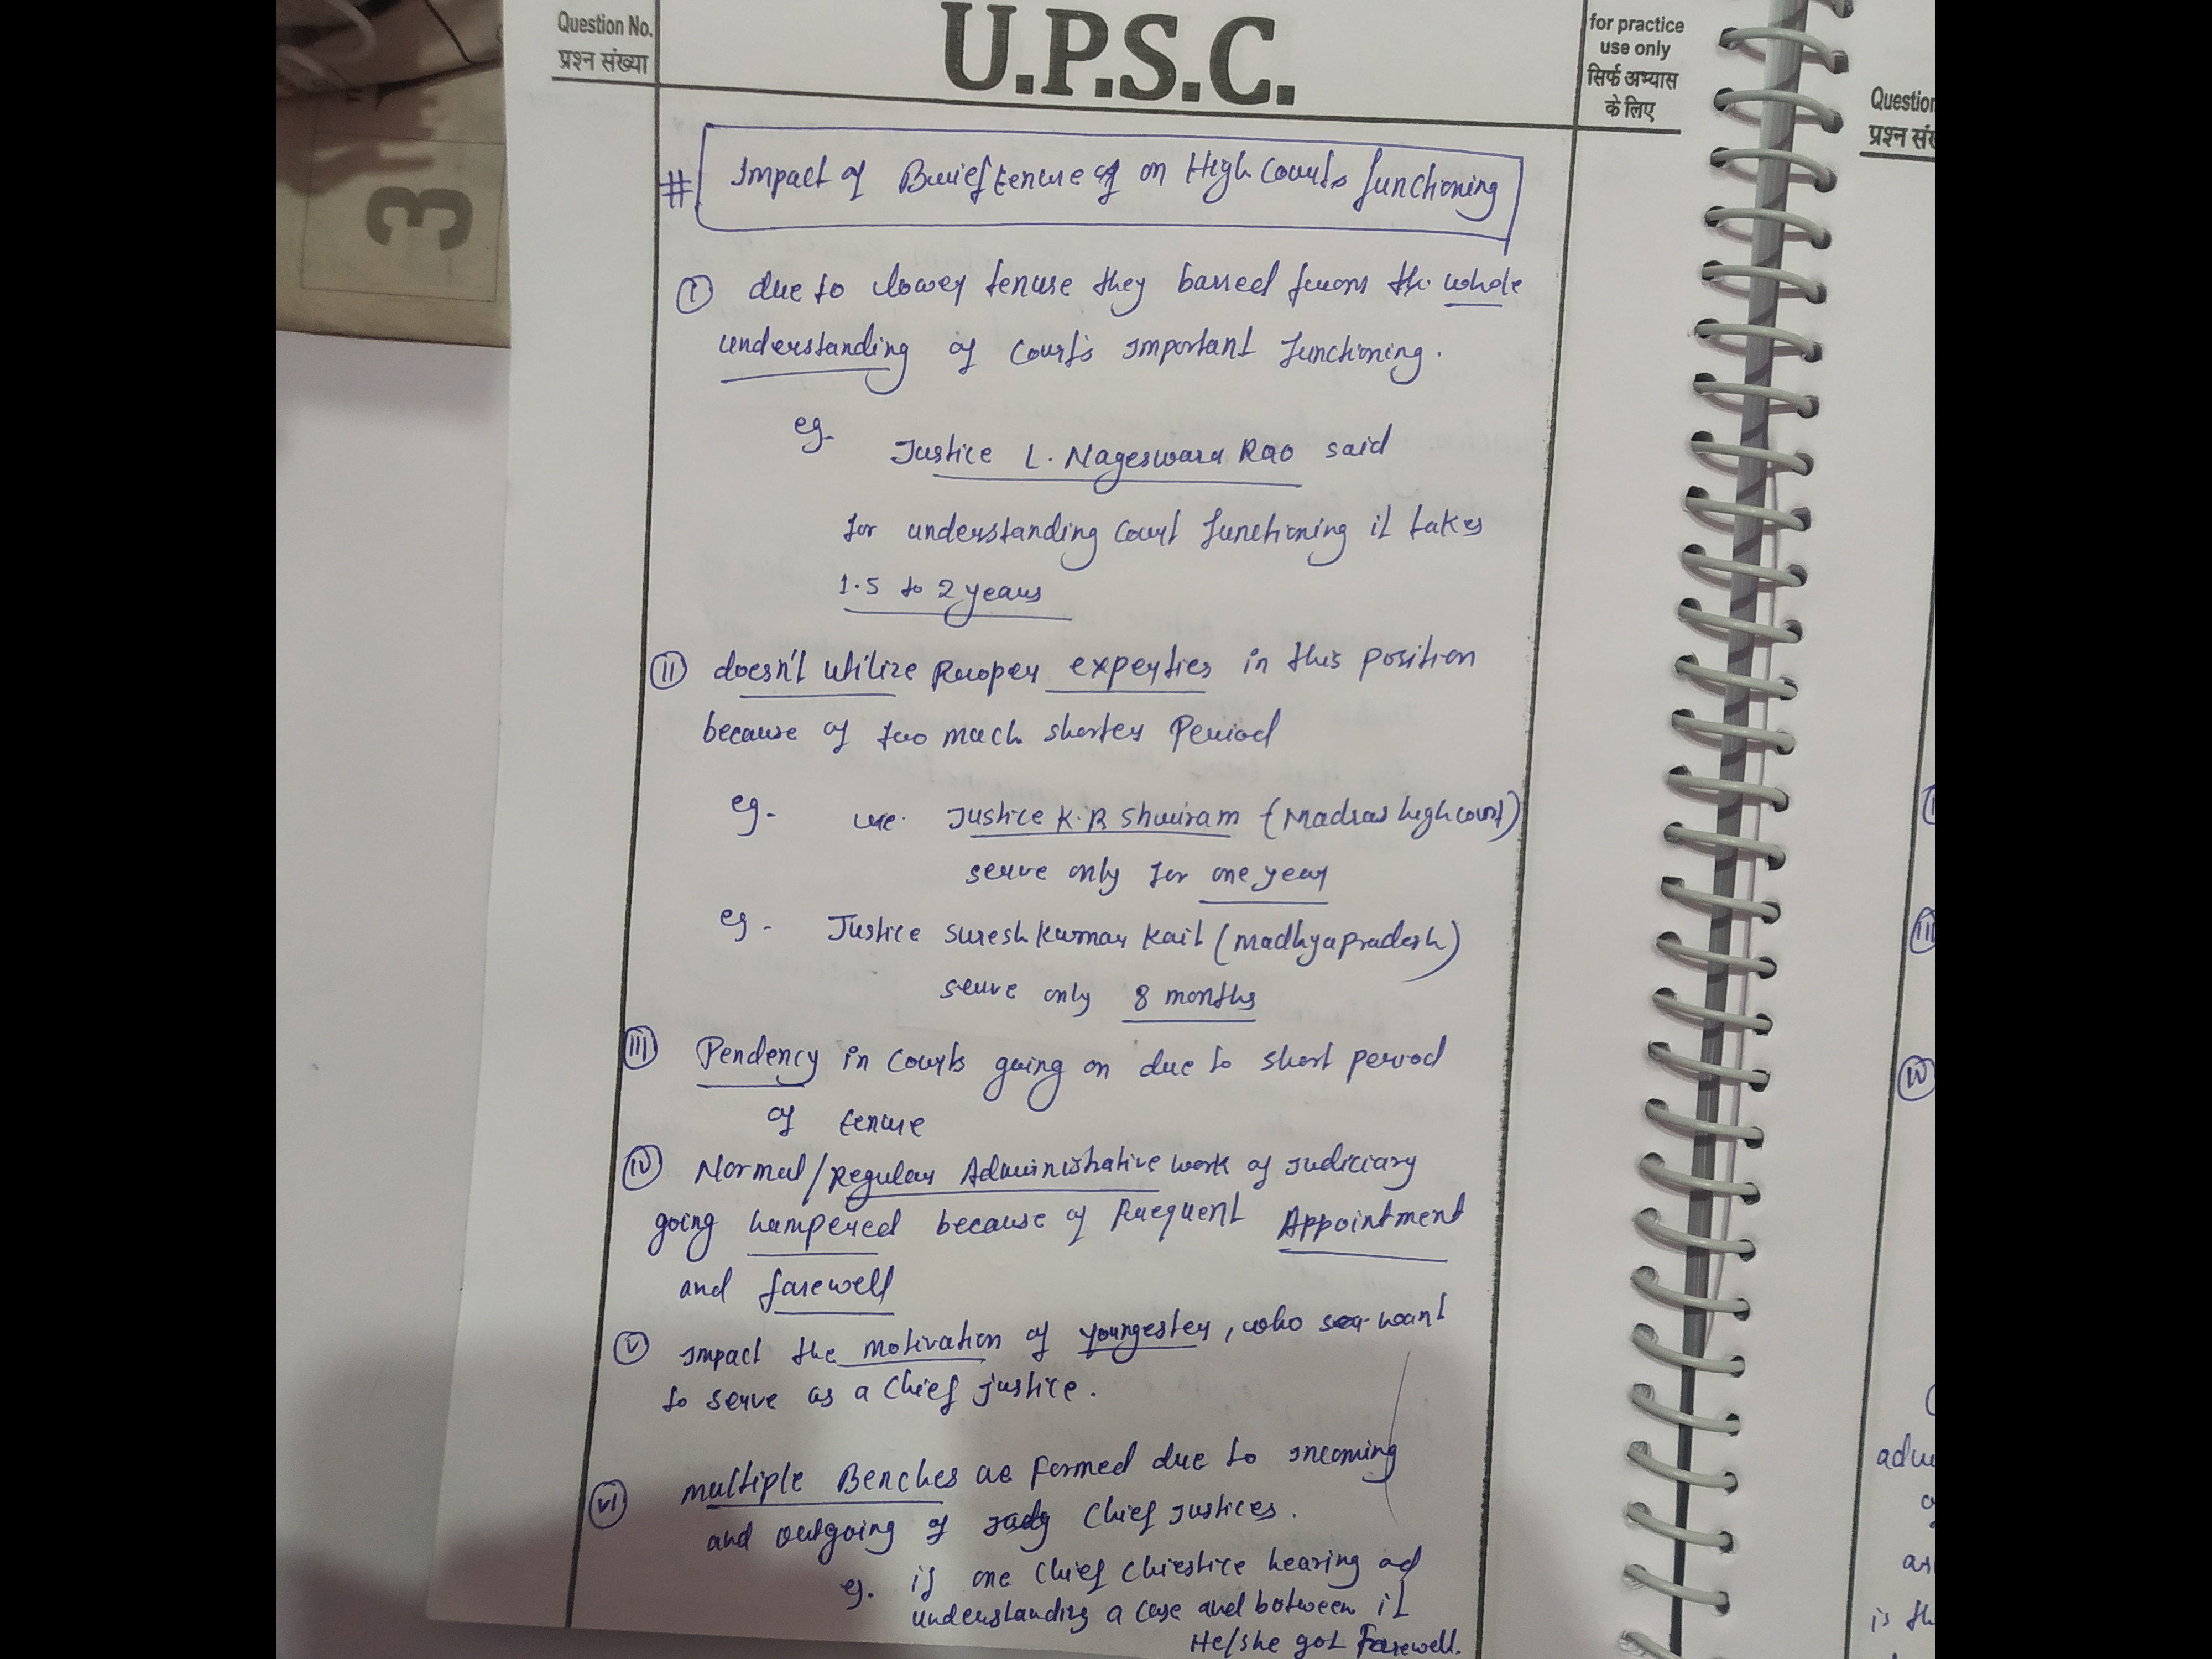 Question No.
प्रश्न संख्या
U.P.S.C.
for practice
use only
सिर्फ अभ्यास
के लिए
# Impact of Brief tenure of on High Courts functioning
(I) due to lower tenure they barred from the whole
understanding of Court's important functioning.
eg. Justice L. Nageswara Rao said
for understanding Court functioning it takes
1.5 to 2 years
(II) doesn't utilize proper experties in this position
because of too much shorter Period
eg- Justice K.R Shriram (Madras high court)
serve only for one year
eg - Justice Suresh Kumar Kait (Madhya pradesh)
serve only 8 months
(III) Pendency in Courts going on due to short period
of tenure
(IV) Normal/Regular Administrative work of Judiciary
going hampered because of frequent Appointment
and farewell
(V) Impact the motivation of youngester, who want
to serve as a Chief justice.
(VI) multiple Benches are formed due to incoming
and outgoing of Chief Justices.
eg. if one Chief Chiestice hearing ad
understanding a case and between it
He/she got Farewell.
3
Question
प्रश्न सं
(III)
(IV)
adm
as
is th